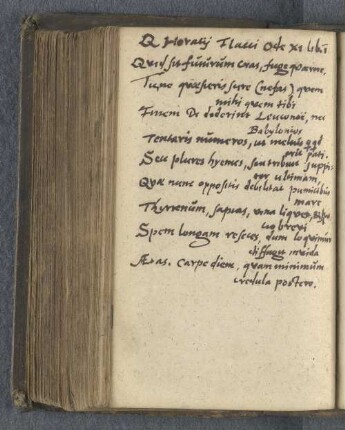 Q Horatij Flacci Ode XI lib i
Quid sit futurum cras, fuge quærere,
Tu ne quæsieris scire (nefas) quem
mihi quem tibi
Finem Di dederint Leuconoë, nec
Babylonios
Tentaris numeros, ut melius qqd
erit pati.
Seu plures hyemes, seu tribuit Juppi-
ter ultimam,
Quæ nunc oppositis debilitat pumicibus
mare
Thyrrenum, sapias, vina liques,
brevi
Spem longam reseces, dum loquimur
invida
Ætas. Carpe diem, quam minimum
credula postero.